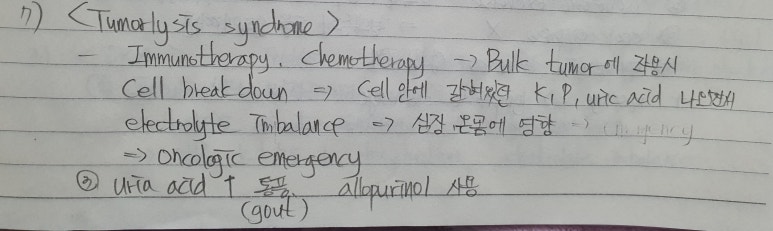 7) <Tumorlysis syndrome>
- Immunotherapy, Chemotherapy → Bulk tumor에 작용시
Cell break down ⇒ Cell 안에 갇혀있던 K, P, uric acid 나오면서
electrolyte imbalance ⇒ 심장 운동에 영향 ⇒
⇒ Oncologic emergency
② uria acid ↑ 통풍. allopurinol 사용
(gout)